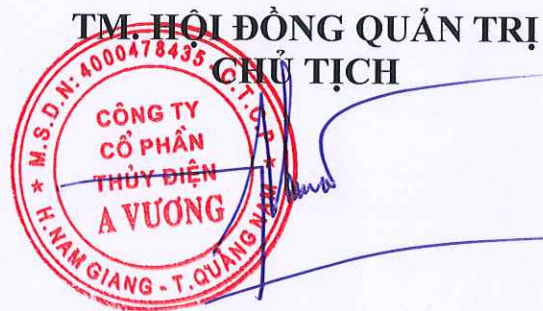 TM. HỘI ĐỒNG QUẢN TRỊ
CHỦ TỊCH
M.S.D.N: 4000478435 - C.T.C.P
CÔNG TY
CỔ PHẦN
THỦY ĐIỆN
A VƯƠNG
★ H. NAM GIANG - T. QUẢNG NAM ★